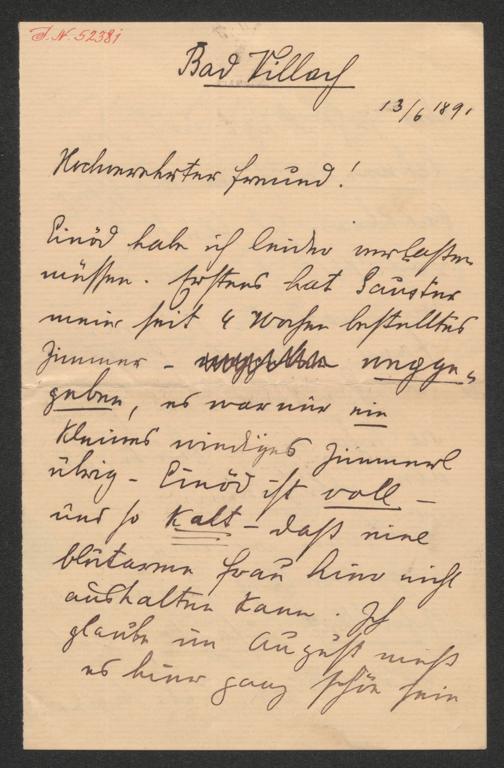 J. N. 52381
Bad Villach
13/6 1891
Hochverehrter Freund!
Einöd habe ich leider verlassen
müssen. Erstens hat
meier seit 4 Wochen bestelltes
Zimmer - wegge-
geben, es war nur ein
kleines windiges Zimmerl
übrig - Einöd ist voll -
und so kalt - daß eine
blutarme Frau hier nicht
aushalten kann. Ich
glaube im August muß
es hier ganz schön sein